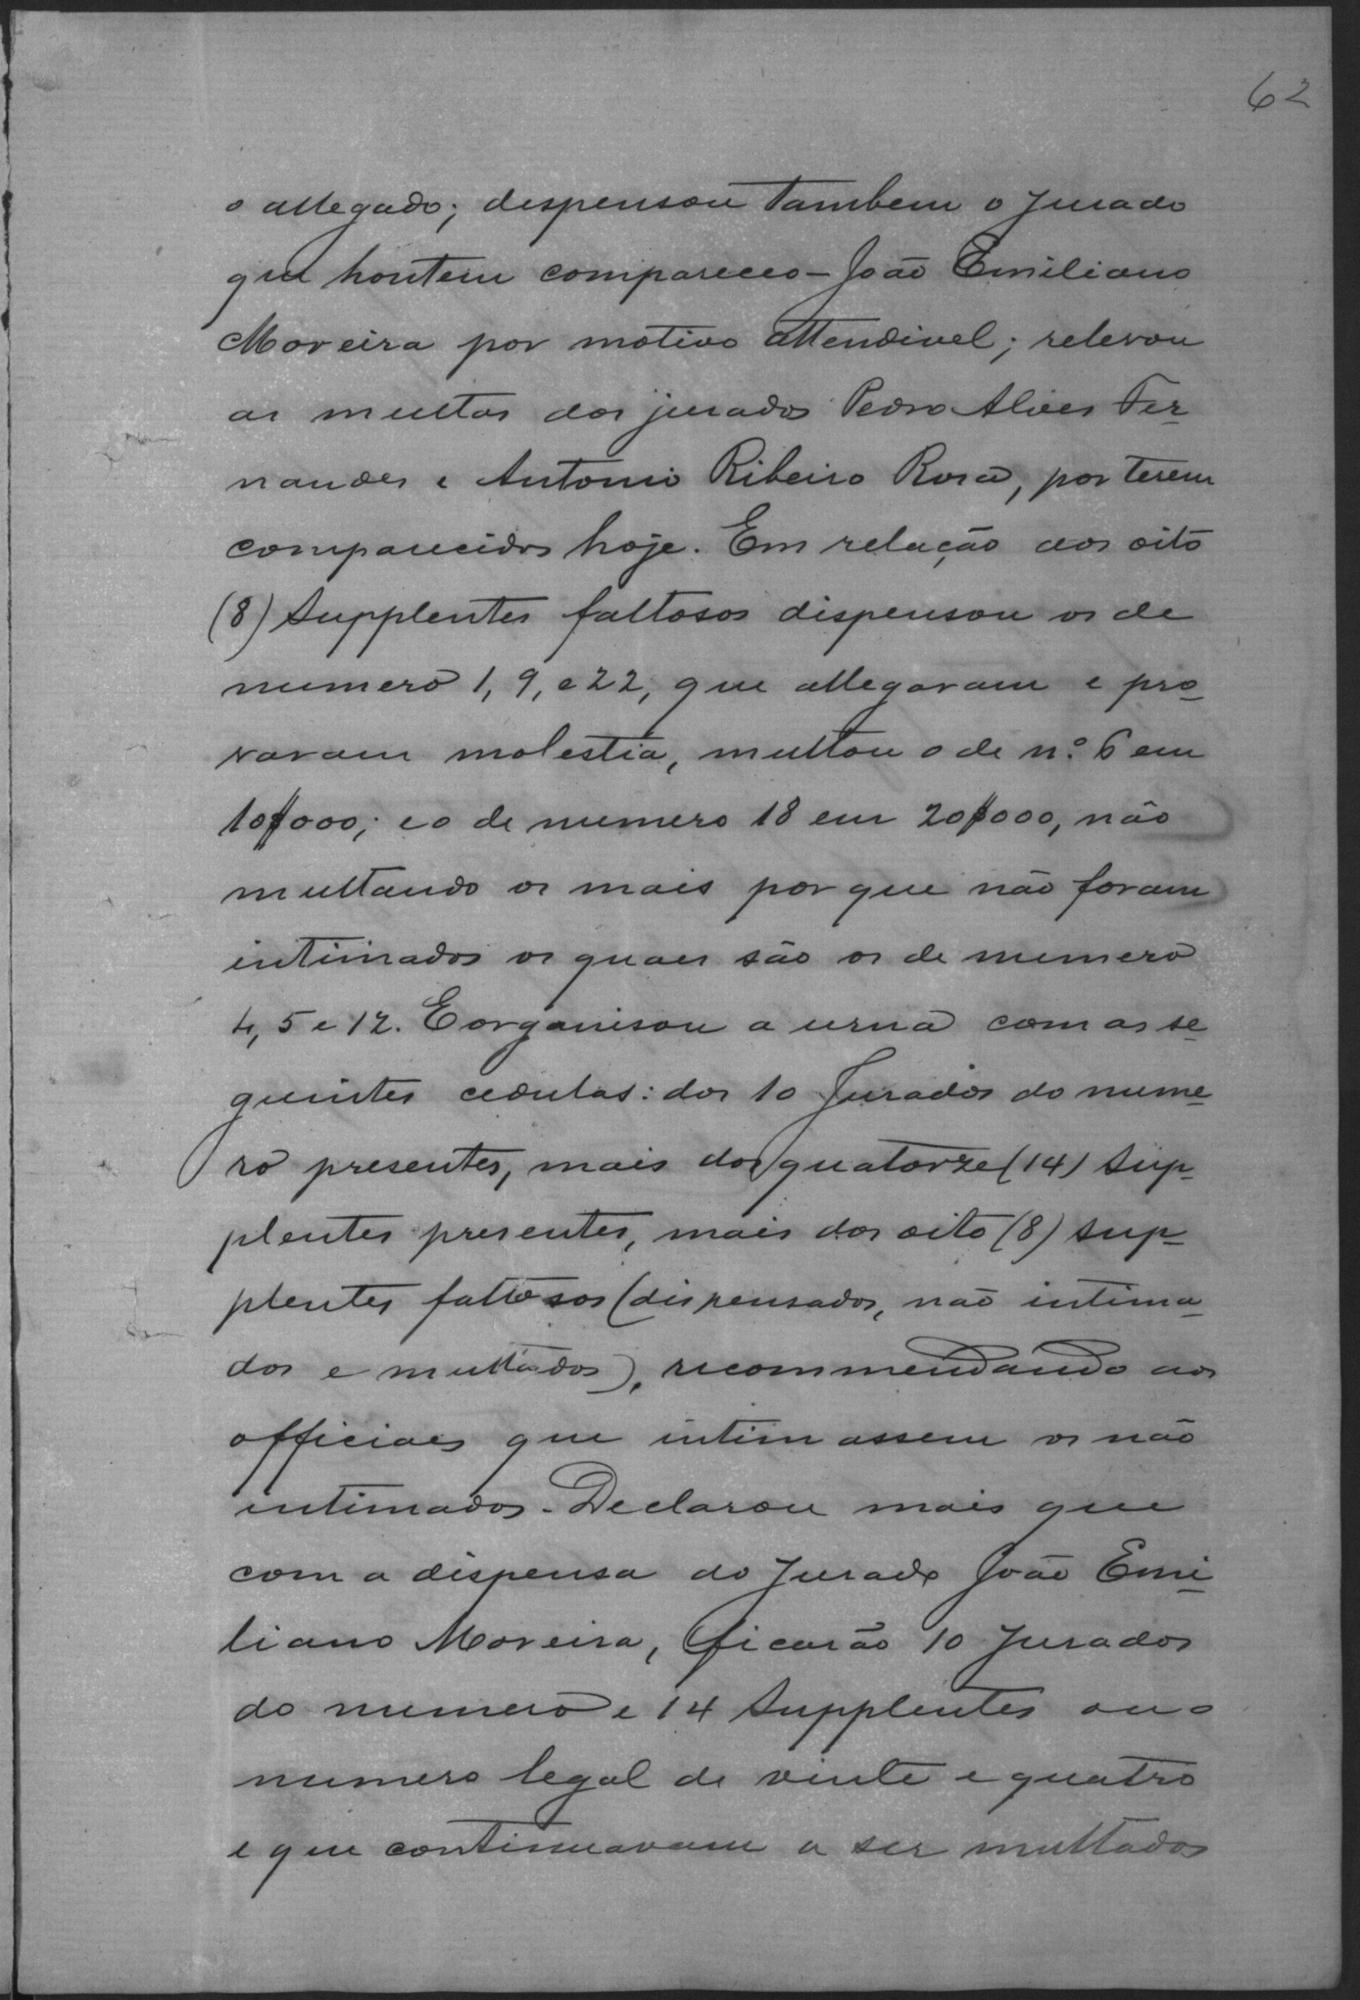 62
o allegado; dispensou tambem o jurado
que hontem compareceo - João Emiliano
Moreira por motivo attendivel; relevou
as multas dos jurados Pedro Alves Fer-
nandes e Antonio Ribeiro Rosa, por terem
comparecidos hoje. Em relação aos oito
(8) supplentes faltosos dispensou os de
numero 1, 9, e 22, que allegaram e pro-
varam molestia, multou o de n.º 6 em
10$000; e o de numero 18 em 20$000, não
multando os mais por que não foram
intimados os quaes são os de numero
4, 5 e 12. E organisou a urna com as se-
guintes cedulas: dos 10 Jurados do nume-
ro presentes, mais dos quatorze (14) sup-
plentes presentes, mais dos oito (8) sup-
plentes faltosos (dispensados, não intima-
dos e multados), recommendando aos
officiaes que intimassem os não
intimados. Declarou mais que
com a dispensa do jurado João Emi-
liano Moreira, ficarão 10 jurados
do numero e 14 supplentes ou o
numero legal de vinte e quatro
e que continuavam a ser multados